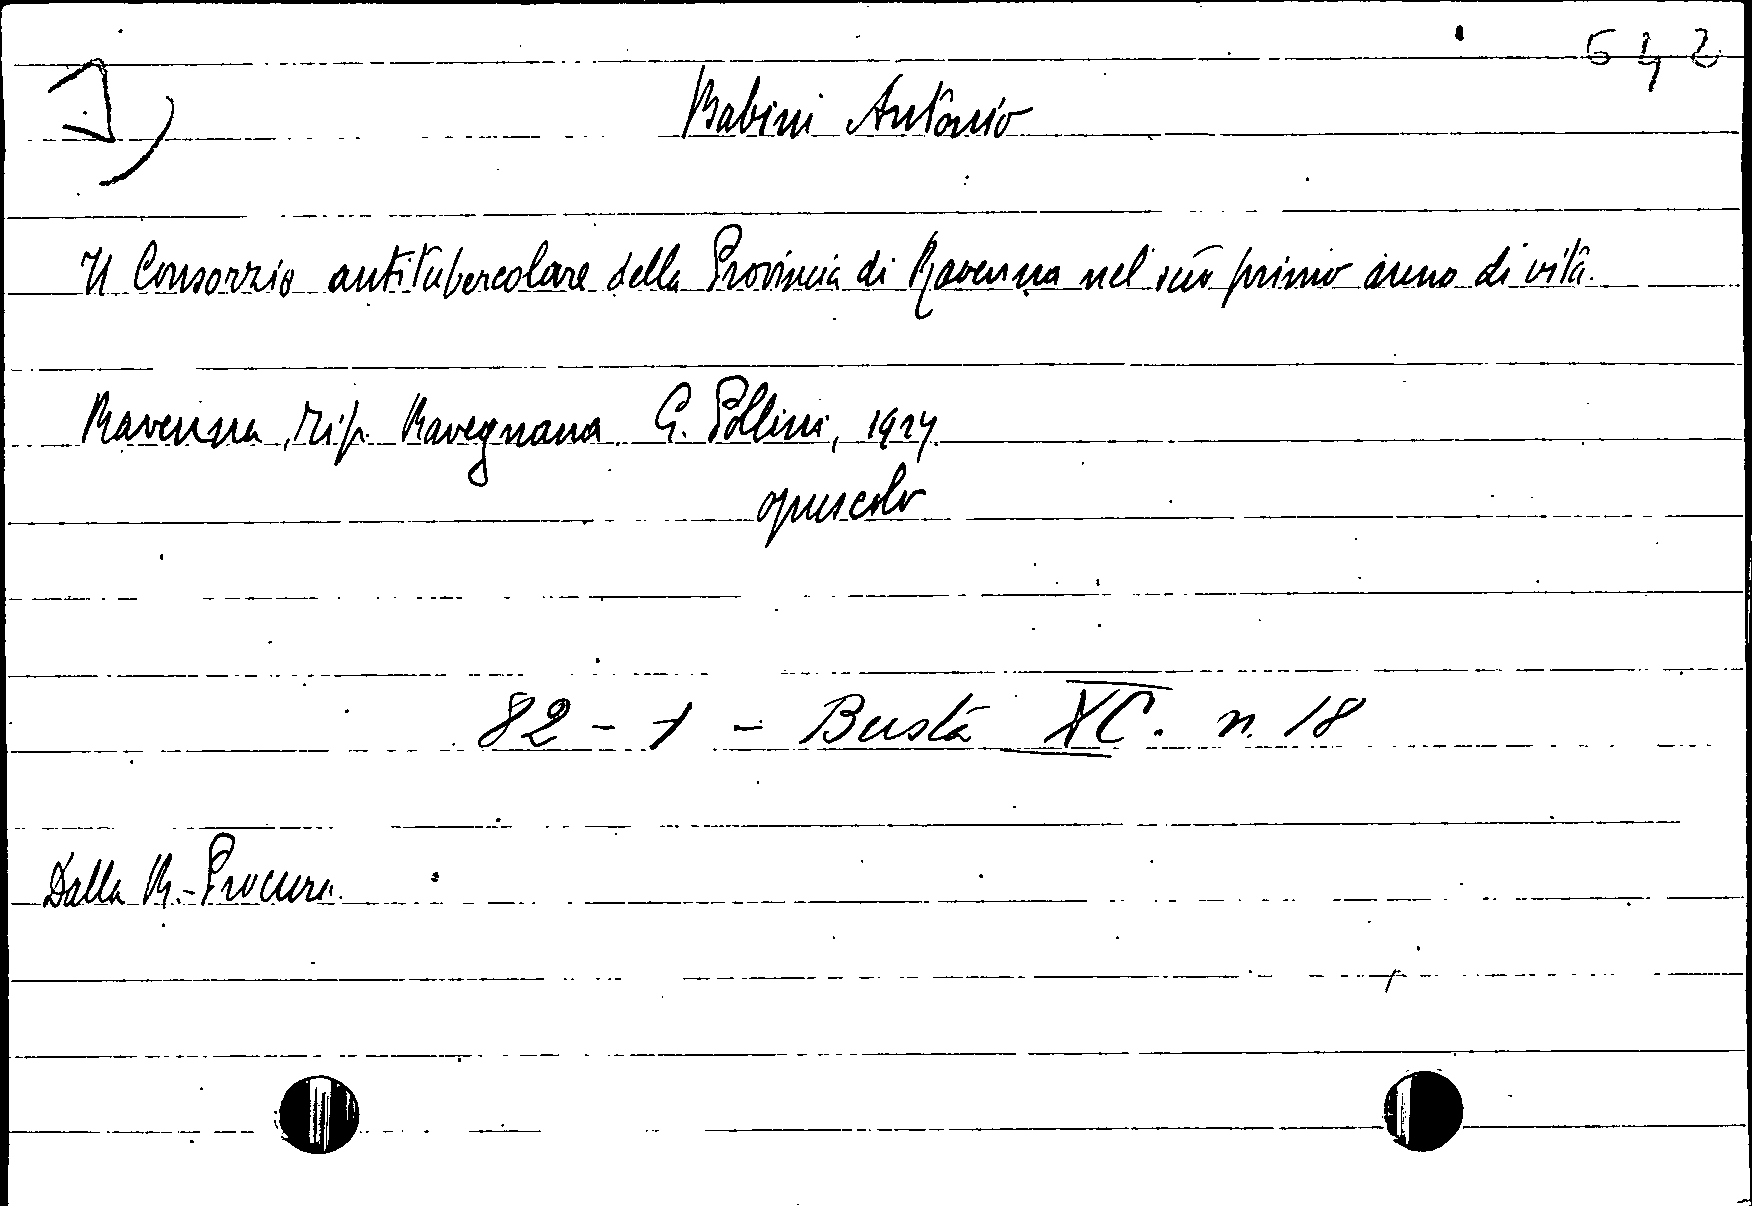 542
1)
Babini Antonio
Il Consorzio antitubercolare della Provincia di Ravenna nel suo primo anno di vita.
Ravenna, Tip. Ravegnana G. Pollini, 1927
opuscolo
82 - 1 - Busta XC. n. 18
Dalla R. - Procura.